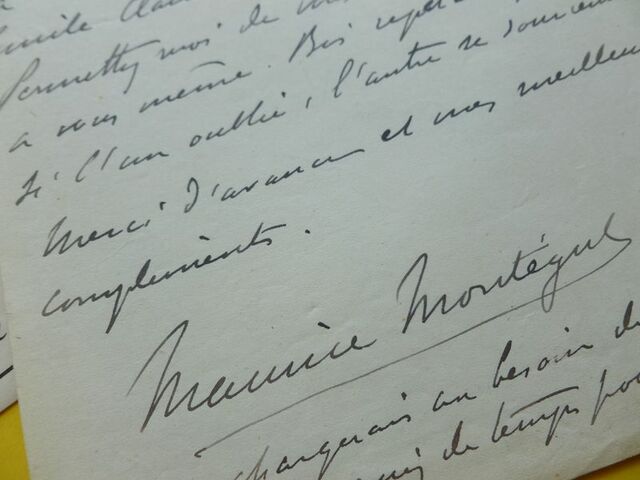 Permettez moi de
a vous même. Bis repet
si l'un oublie, l'autre se souvient
Merci d'avance et mes meilleurs
compléments.
Maurice Montégut
chargerais au besoin de
de temps pou